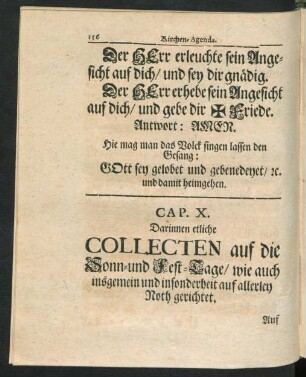 156 Kirchen-Agenda.
Der HErr erleuchte sein Ange-
sicht auf dich/ und sey dir gnädig.
Der HErr erhebe sein Angesicht
auf dich/ und gebe dir ✠ Friede.
Antwort: AMEN.
Hie mag man das Volck singen lassen den
Gesang:
GOtt sey gelobet und gebenedeyet/ ꝛc.
und damit heimgehen.
CAP. X.
Darinnen etliche
COLLECTEN auf die
Sonn-und Fest-Tage/ wie auch
insgemein und insonderheit auf allerley
Noth gerichtet.
Auf